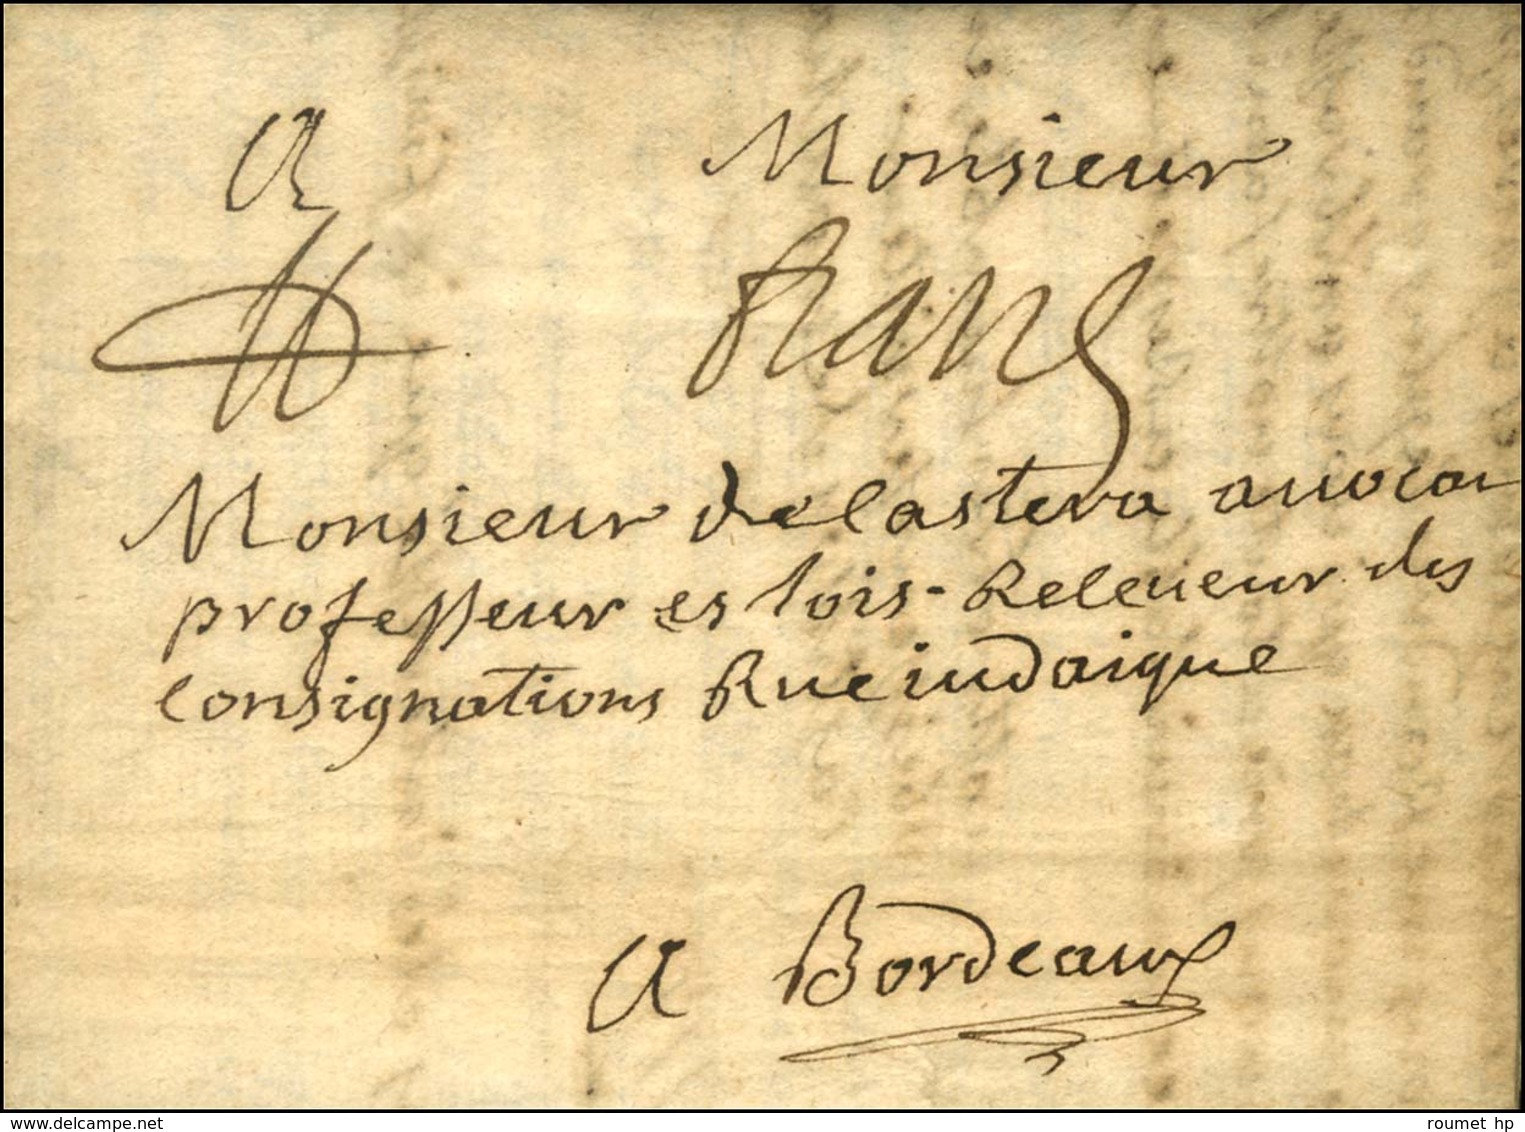 A Monsieur
franc
Monsieur delastera auocat
professeur es lois - Receueur des
consignations Rue iudaique
A Bordeaux
www.delcampe.net
roumet hp